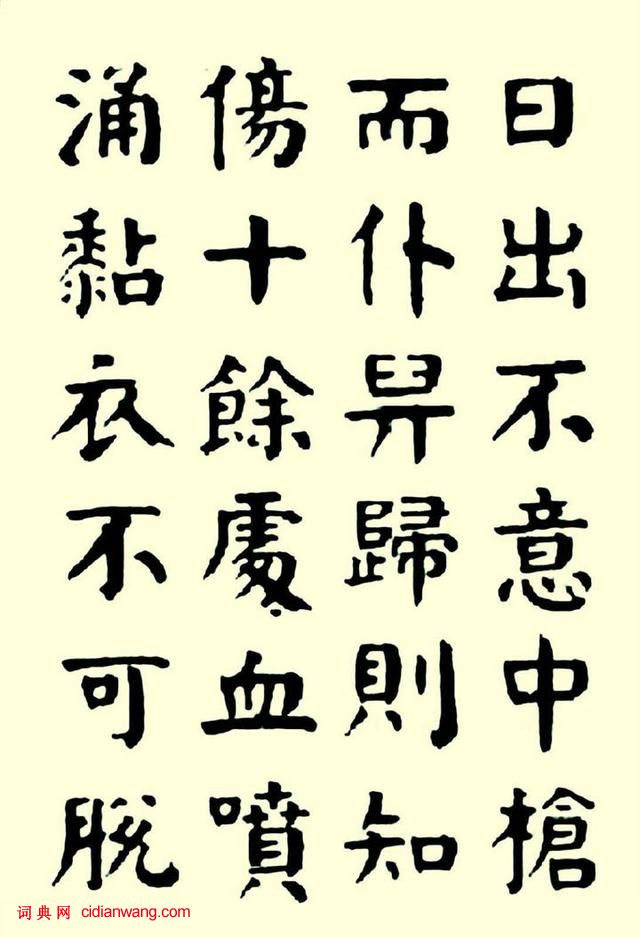 日出不意中槍
而仆舁歸則知
傷十餘處血噴
涌黏衣不可脫
词典网 cidianwang.com